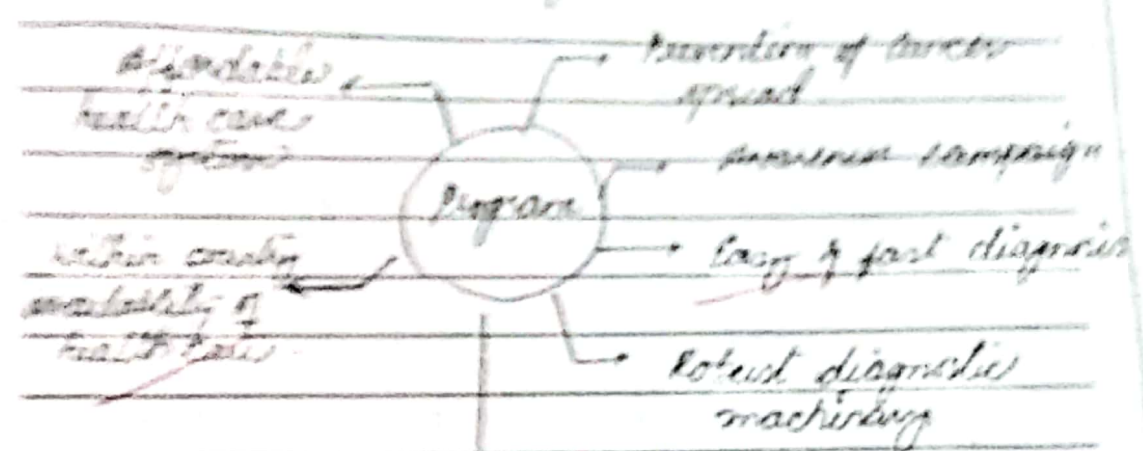 Affordable
health care
system
Prevention of Cancer
spread
Awareness campaign
Program
Easy & fast diagnosis
within country
availability of
health care
Robust diagnostic
machinery